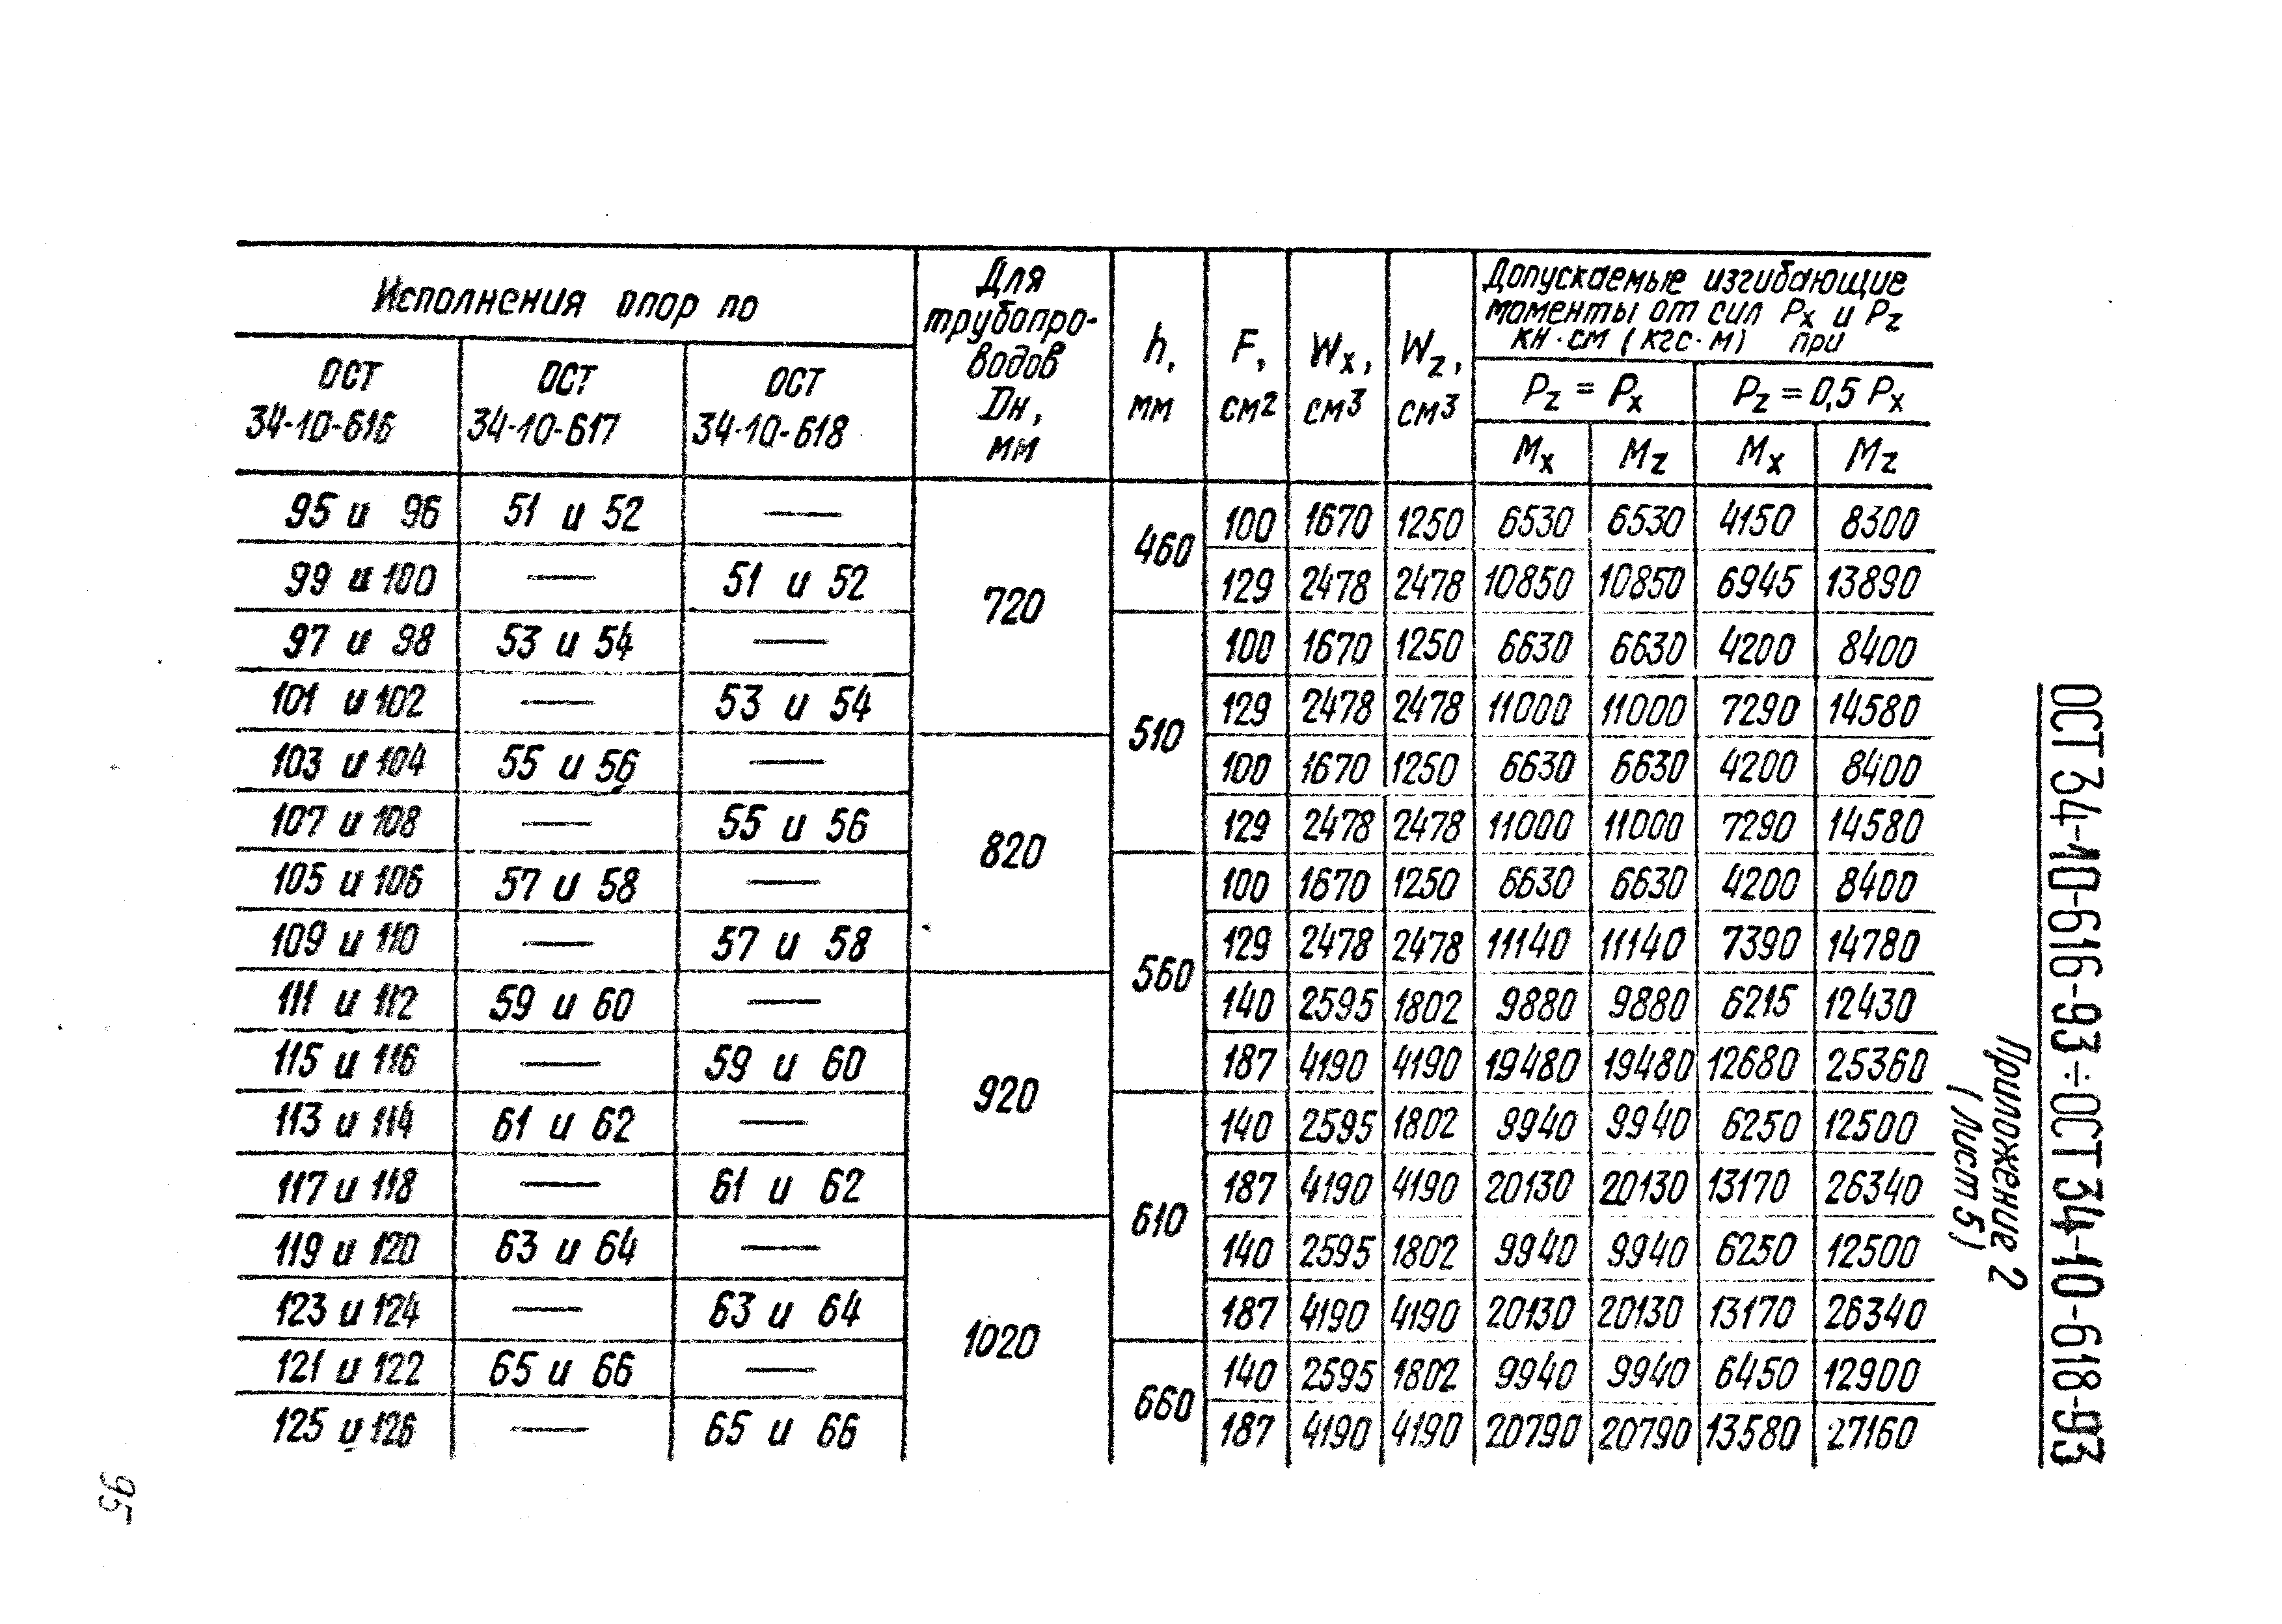 ОСТ 34-10-616-93 ÷ ОСТ 34-10-618-93
Приложение 2
(Лист 5)
Исполнения опор по
ОСТ 34-10-616
ОСТ 34-10-617
ОСТ 34-10-618
Для трубопро-
водов
Dн,
мм
h, мм
F, см²
Wx, см³
Wz, см³
Допускаемые изгибающие
моменты от сил Px и Pz
кН·см (кгс·м) при
Pz = Px Pz = 0,5 Px
Mx Mz Mx Mz
95 и 96 51 и 52 — 720 460 100 1670 1250 6530 6530 4150 8300
99 и 100 — 51 и 52 129 2478 2478 10850 10850 6945 13890
97 и 98 53 и 54 — 510 100 1670 1250 6630 6630 4200 8400
101 и 102 — 53 и 54 129 2478 2478 11000 11000 7290 14580
103 и 104 55 и 56 — 820 100 1670 1250 6630 6630 4200 8400
107 и 108 — 55 и 56 129 2478 2478 11000 11000 7290 14580
105 и 106 57 и 58 — 560 100 1670 1250 6630 6630 4200 8400
109 и 110 — 57 и 58 129 2478 2478 11140 11140 7390 14780
111 и 112 59 и 60 — 920 140 2595 1802 9880 9880 6215 12430
115 и 116 — 59 и 60 187 4190 4190 19480 19480 12680 25360
113 и 114 61 и 62 — 610 140 2595 1802 9940 9940 6250 12500
117 и 118 — 61 и 62 187 4190 4190 20130 20130 13170 26340
119 и 120 63 и 64 — 1020 140 2595 1802 9940 9940 6250 12500
123 и 124 — 63 и 64 187 4190 4190 20130 20130 13170 26340
121 и 122 65 и 66 — 660 140 2595 1802 9940 9940 6450 12900
125 и 126 — 65 и 66 187 4190 4190 20790 20790 13580 27160
95